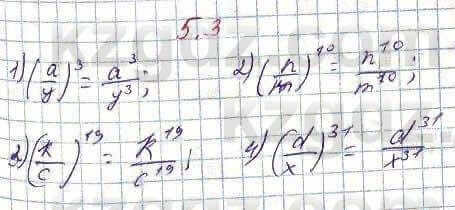 5.3
1) (a/y)³ = a³/y³; 2) (n/m)¹⁰ = n¹⁰/m¹⁰;
3) (k/c)¹⁹ = k¹⁹/c¹⁹; 4) (d/x)³¹ = d³¹/x³¹